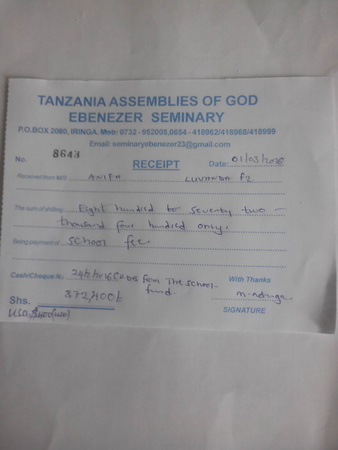 TANZANIA ASSEMBLIES OF GOD
EBENEZER SEMINARY
P.O.BOX 2080, IRINGA. Mob: 0732 - 952008,0654 - 418962/418968/418999
Email: seminaryebenezer23@gmail.com
No. 8643 RECEIPT Date: 01/03/
Received from M/S LUVANDA F2
The sum of shilling Eight hundred seventy two
thousand four hundred only.
Being payment of school fee
Cash/Cheque No from The school With Thanks
fund.
Shs. 872,400/= SIGNATURE